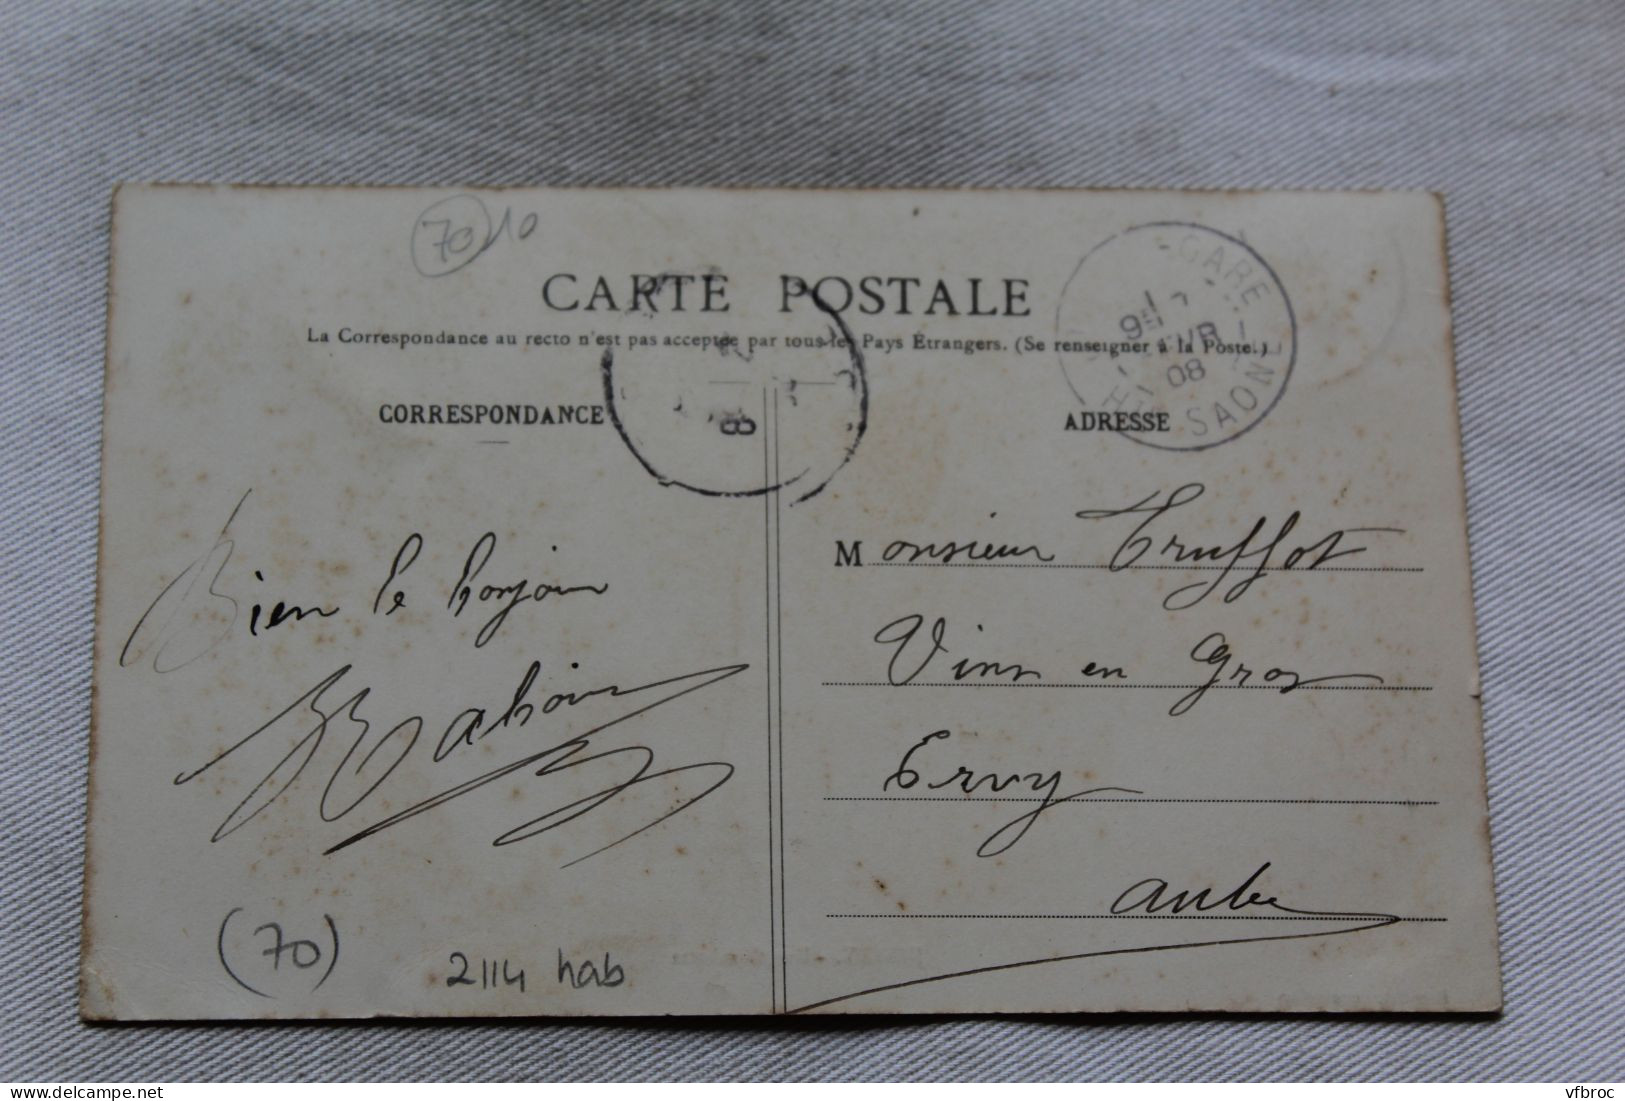 70 10
CARTE POSTALE
La Correspondance au recto n'est pas acceptée par tous les Pays Etrangers. (Se renseigner à la Poste.)
GARE
9
08
SAONE
8
CORRESPONDANCE
ADRESSE
Bien le bonjour
Monsieur Truffot
Vins en Gros
Ervy
Aube
(70)
2114 hab
vfbroc